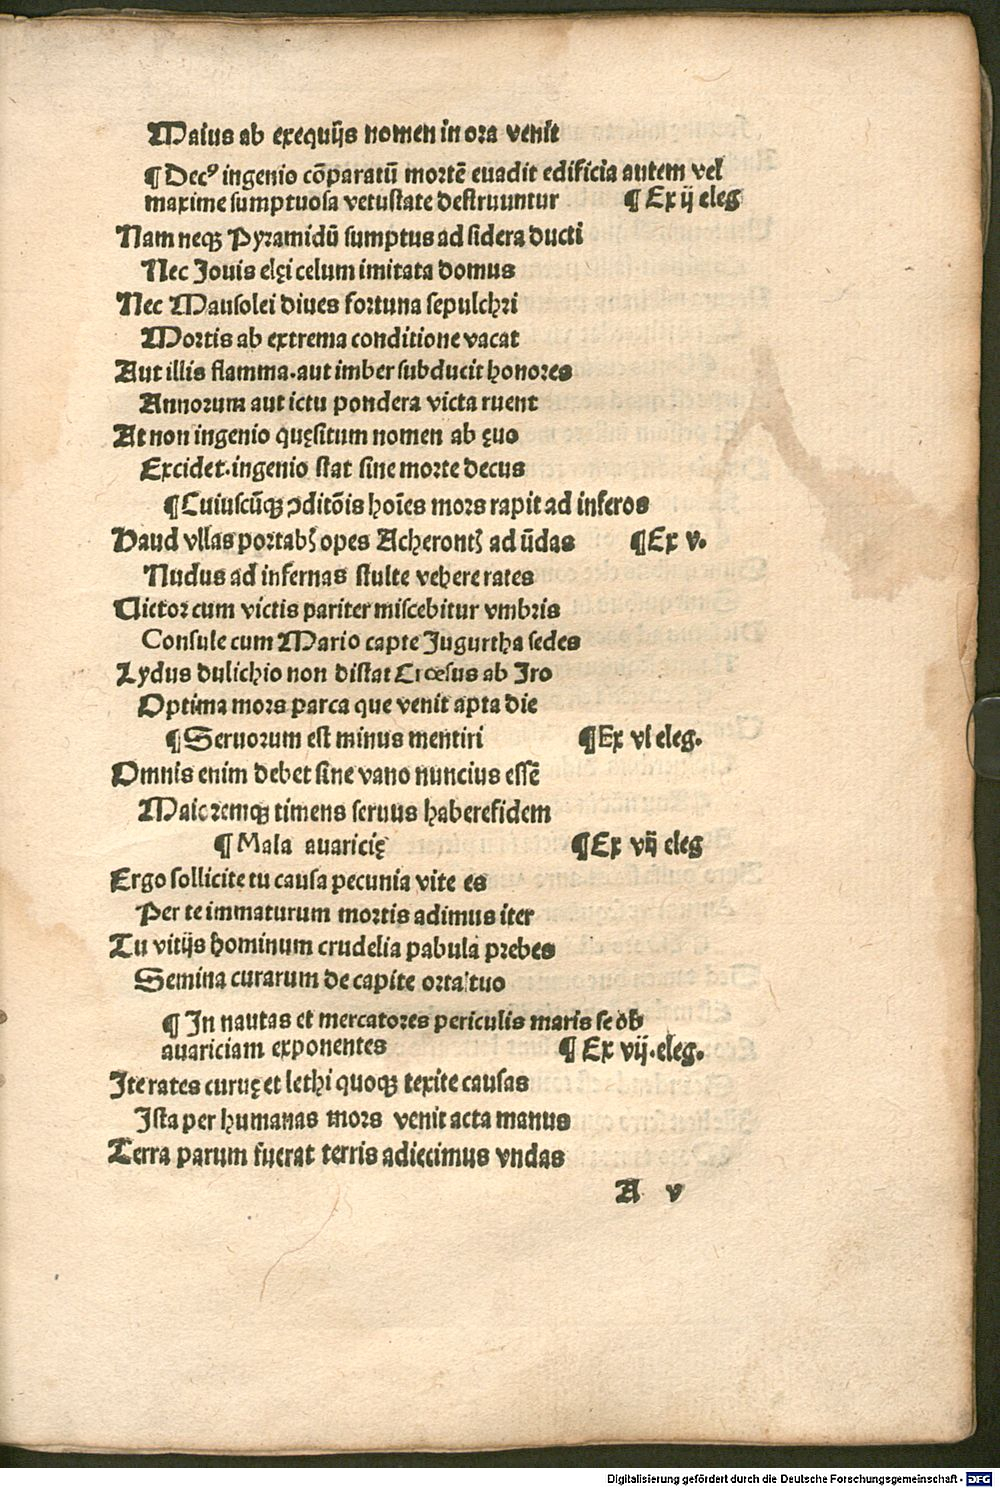 Maius ab exequijs nomen in ora venit
¶ Decꝰ ingenio cōparatū mortē euadit edificia autem vel
maxime sumptuosa vetustate destruuntur ¶ Ex ij eleg
Nam neqꝫ Pyramidū sumptus ad sidera ducti
Nec Jouis elęi celum imitata domus
Nec Mausolei diues fortuna sepulchri
Mortis ab extrema conditione vacat
Aut illis flamma.aut imber subducit honores
Annorum aut ictu pondera victa ruent
At non ingenio quęsitum nomen ab ęuo
Excidet.ingenio stat sine morte decus
¶ Cuiuscūqꝫ ↄditōis hoīes mors rapit ad inferos
Haud vllas portabꝭ opes Acherontꝭ ad ūdas ¶ Ex v.
Nudus ad infernas stulte vehere rates
Victor cum victis pariter miscebitur vmbris
Consule cum Mario capte Jugurtha sedes
Lydus dulichio non distat Crœsus ab Iro
Optima mors parca que venit apta die
¶ Seruorum est minus mentiri ¶ Ex vl eleg.
Omnis enim debet sine vano nuncius essē
Maioremqꝫ timens seruus habere fidem
¶ Mala auaricię ¶ Ex vij eleg
Ergo sollicite tu causa pecunia vite es
Per te immaturum mortis adimus iter
Tu vitijs hominum crudelia pabula prebes
Semina curarum de capite orta tuo
¶ In nautas et mercatores periculis maris se ob
auariciam exponentes ¶ Ex vij.eleg.
Ite rates curuę et lethi quoqꝫ texite causas
Ista per humanas mors venit acta manus
Terra parum fuerat terris adiecimus vndas
A v
Digitalisierung gefördert durch die Deutsche Forschungsgemeinschaft - DFG